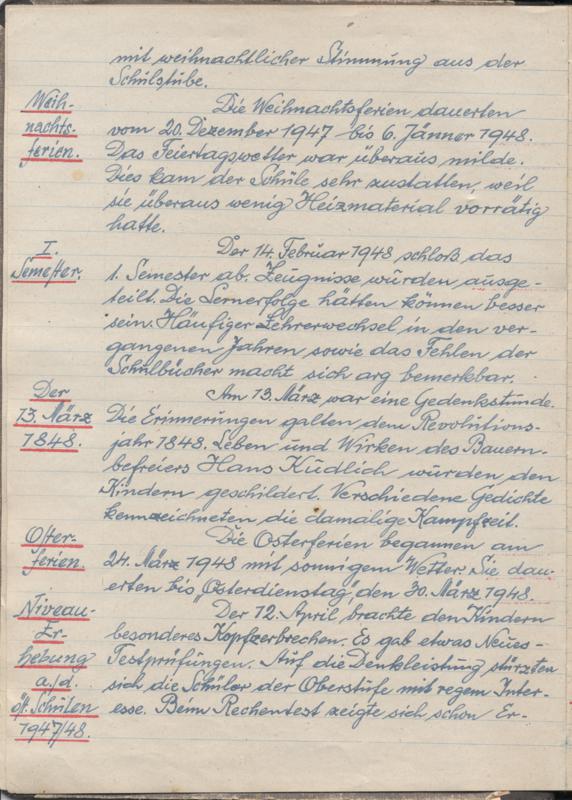 mit weihnachtlicher Stimmung aus der
Schulstube.
Weih-
nachts-
ferien.
Die Weihnachtsferien dauerten
vom 20. Dezember 1947 bis 6. Jänner 1948.
Das Feiertagswetter war überaus milde.
Dies kam der Schule sehr zustatten, weil
sie überaus wenig Heizmaterial vorrätig
hatte.
I.
Semester.
Der 14. Februar 1948 schloß das
1. Semester ab. Zeugnisse wurden ausge-
teilt. Die Lernerfolge hätten können besser
sein. Häufiger Lehrerwechsel in den ver-
gangenen Jahren sowie das Fehlen der
Schulbücher macht sich arg bemerkbar.
Der
13. März
1848.
Am 13. März war eine Gedenkstunde.
Die Erinnerungen galten dem Revolutions-
jahr 1848. Leben und Wirken des Bauern-
befreiers Hans Kudlich wurden den
Kindern geschildert. Verschiedene Gedichte
kennzeichneten die damalige Kampfzeit.
Oster-
ferien.
Die Osterferien begannen am
24. März 1948 mit sonnigem Wetter. Sie dau-
erten bis "Osterdienstag", den 30. März 1948.
Niveau-
Er-
hebung
a./d.
öst. Schulen
1947/48.
Der 12. April brachte den Kindern
besonderes Kopfzerbrechen. Es gab etwas Neues-
Testprüfungen. Auf die Denkleistung stürzten
sich die Schüler der Oberstufe mit regem Inter-
esse. Beim Rechentest zeigte sich schon Er-